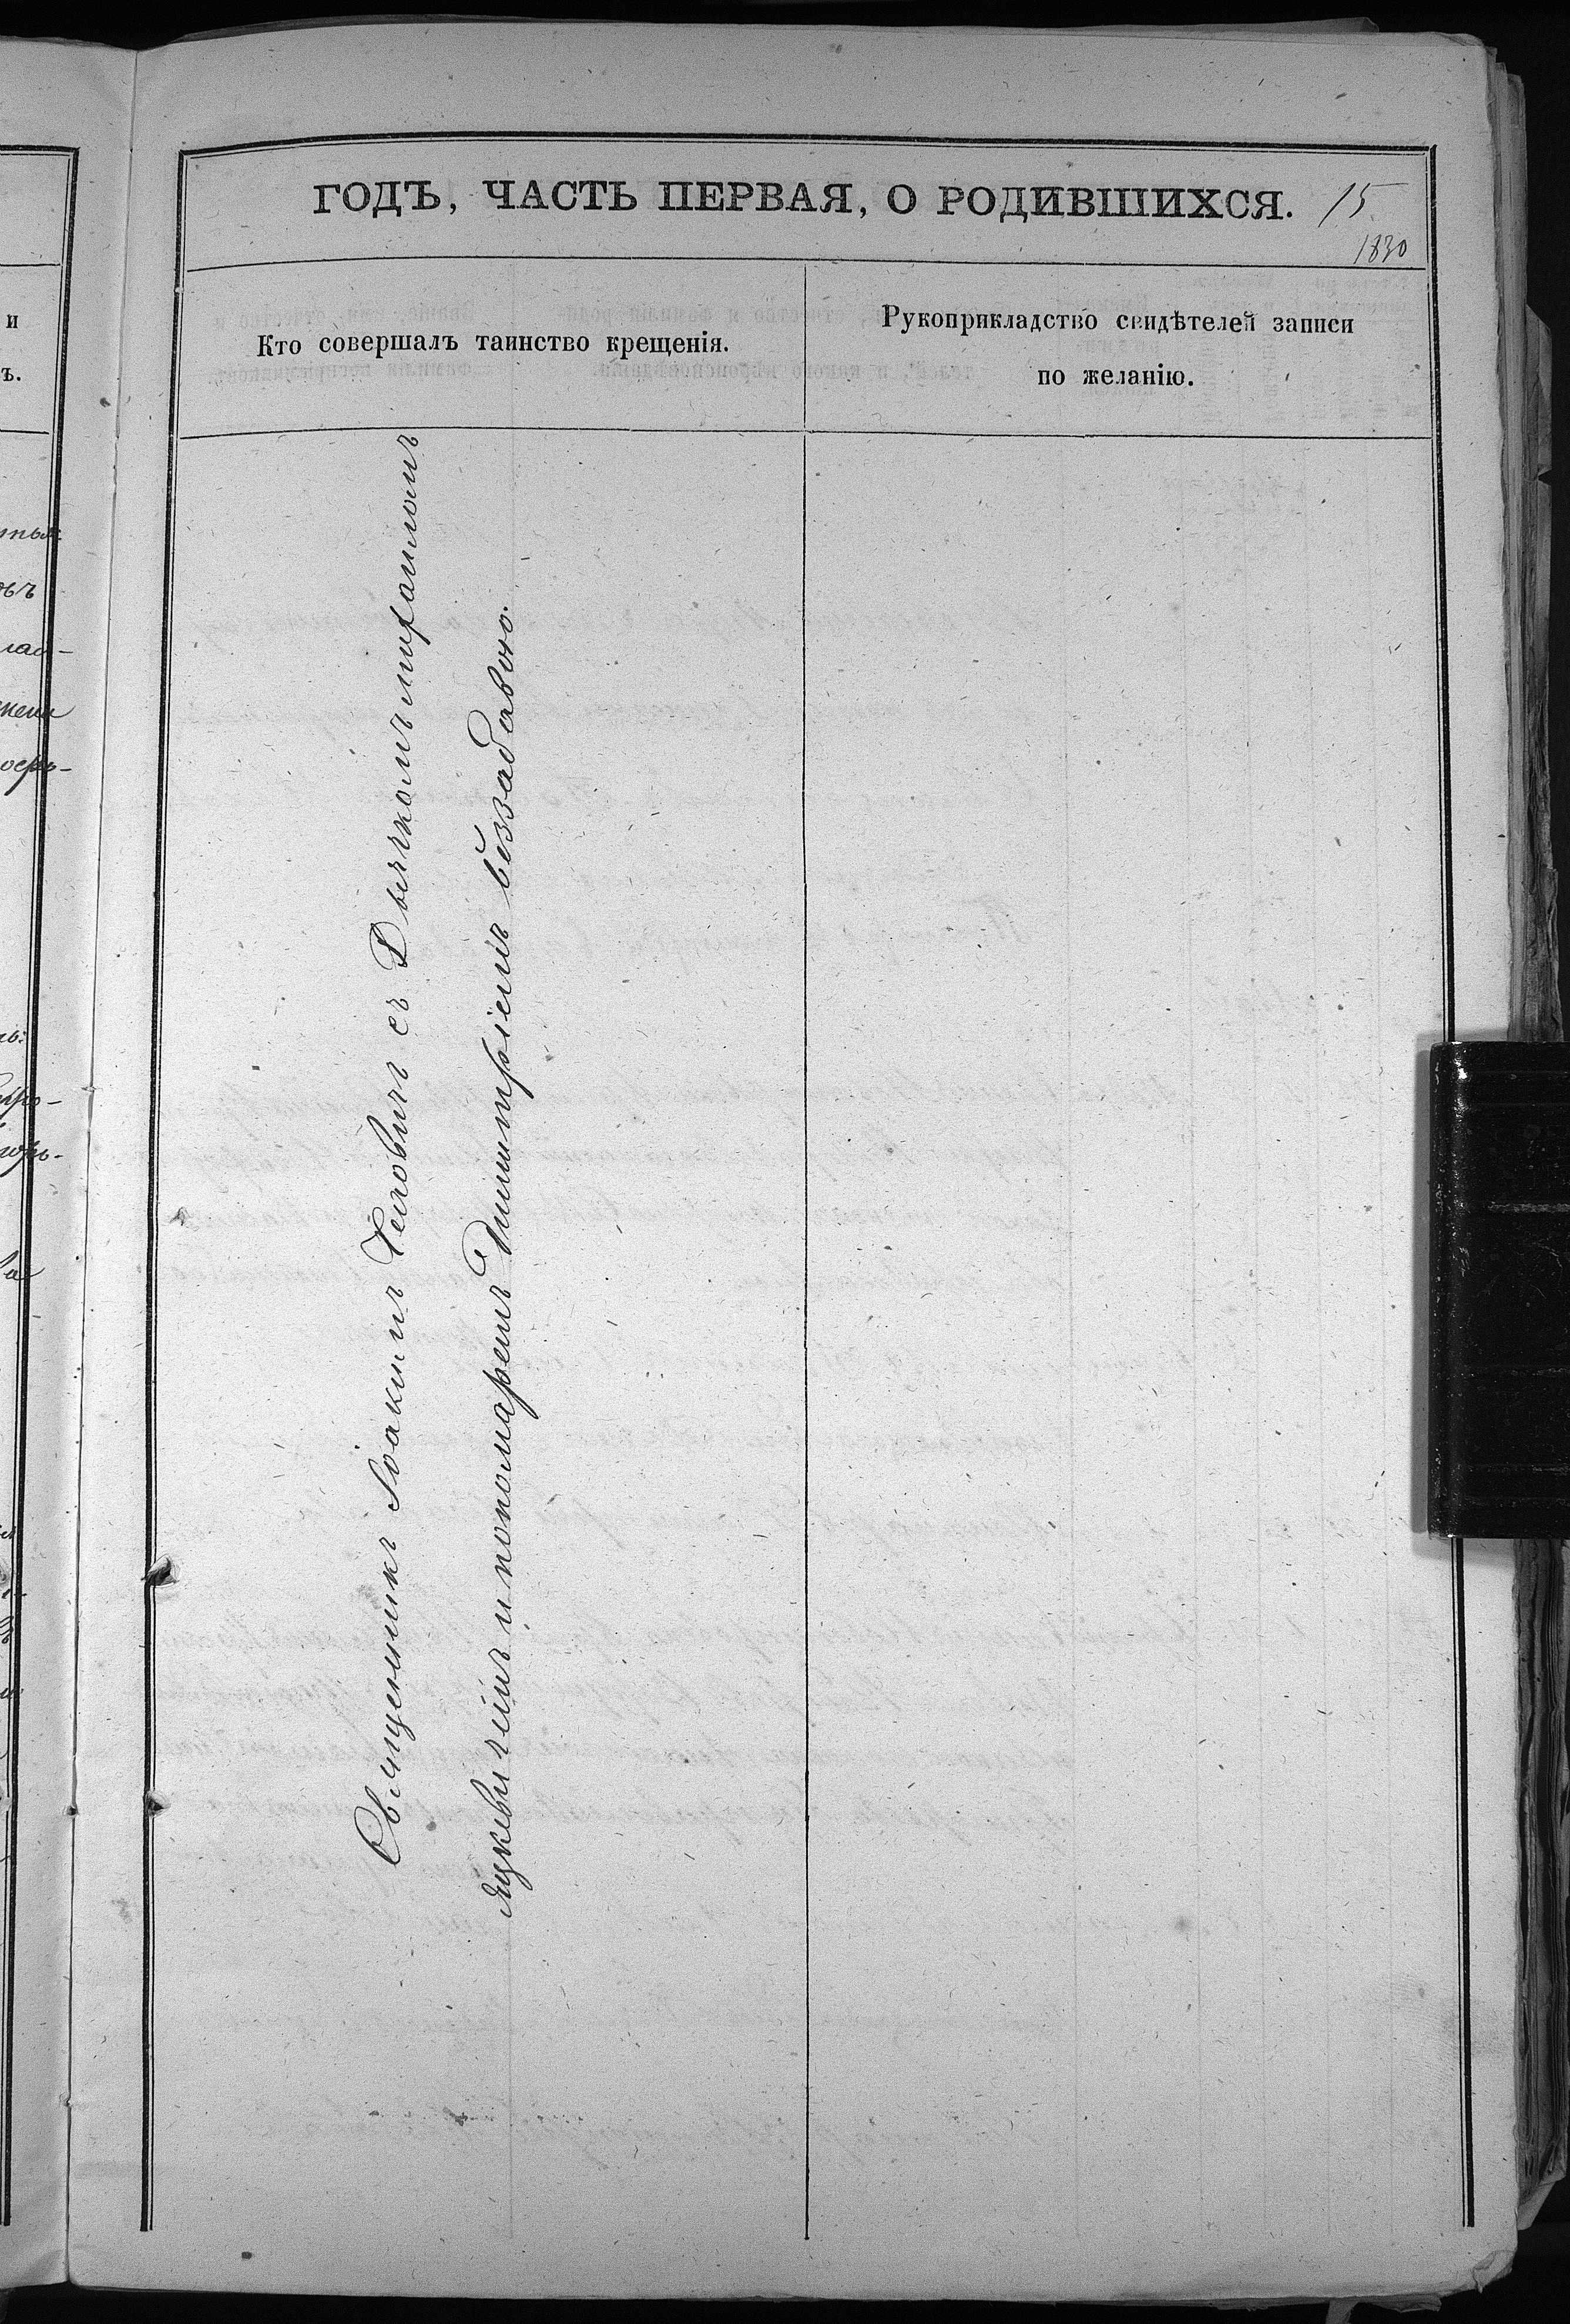 ГОДЪ, ЧАСТЬ ПЕРВАЯ, О РОДИВШИХСЯ.
15
1830
Кто совершалъ таинство крещенія.
Рукоприкладство свидѣтелей записи
по желанію.
Священникъ Іоакимъ Теловичъ съ Дьячкомъ михаиломъ
яцкевичимъ и пономаремъ Димитріемъ беззабавою.
и
ъ.